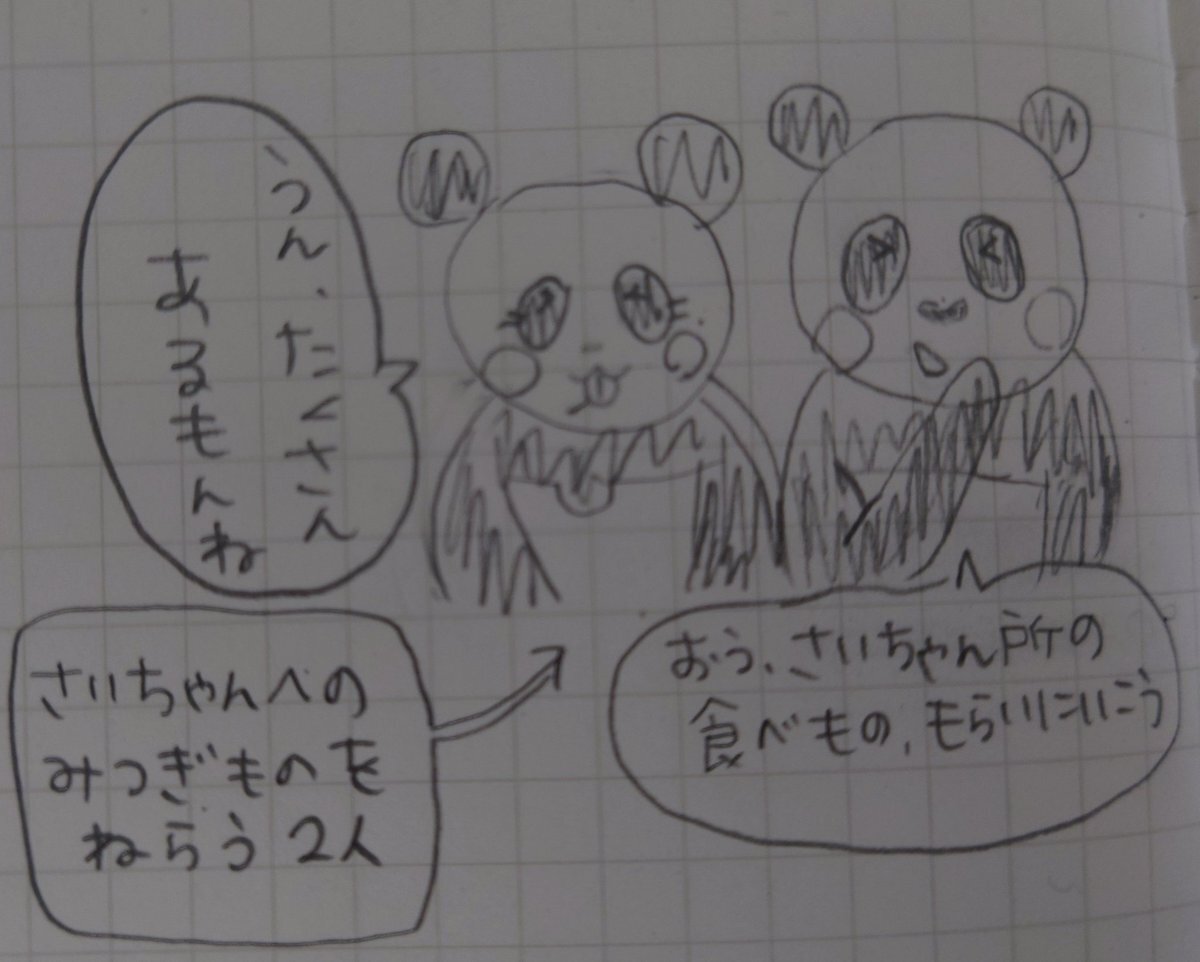 うん、たくさん
あるもんね
おう、さいちゃん所の
食べもの、もらいにいこう
さいちゃんへの
みつぎものを
ねらう2人